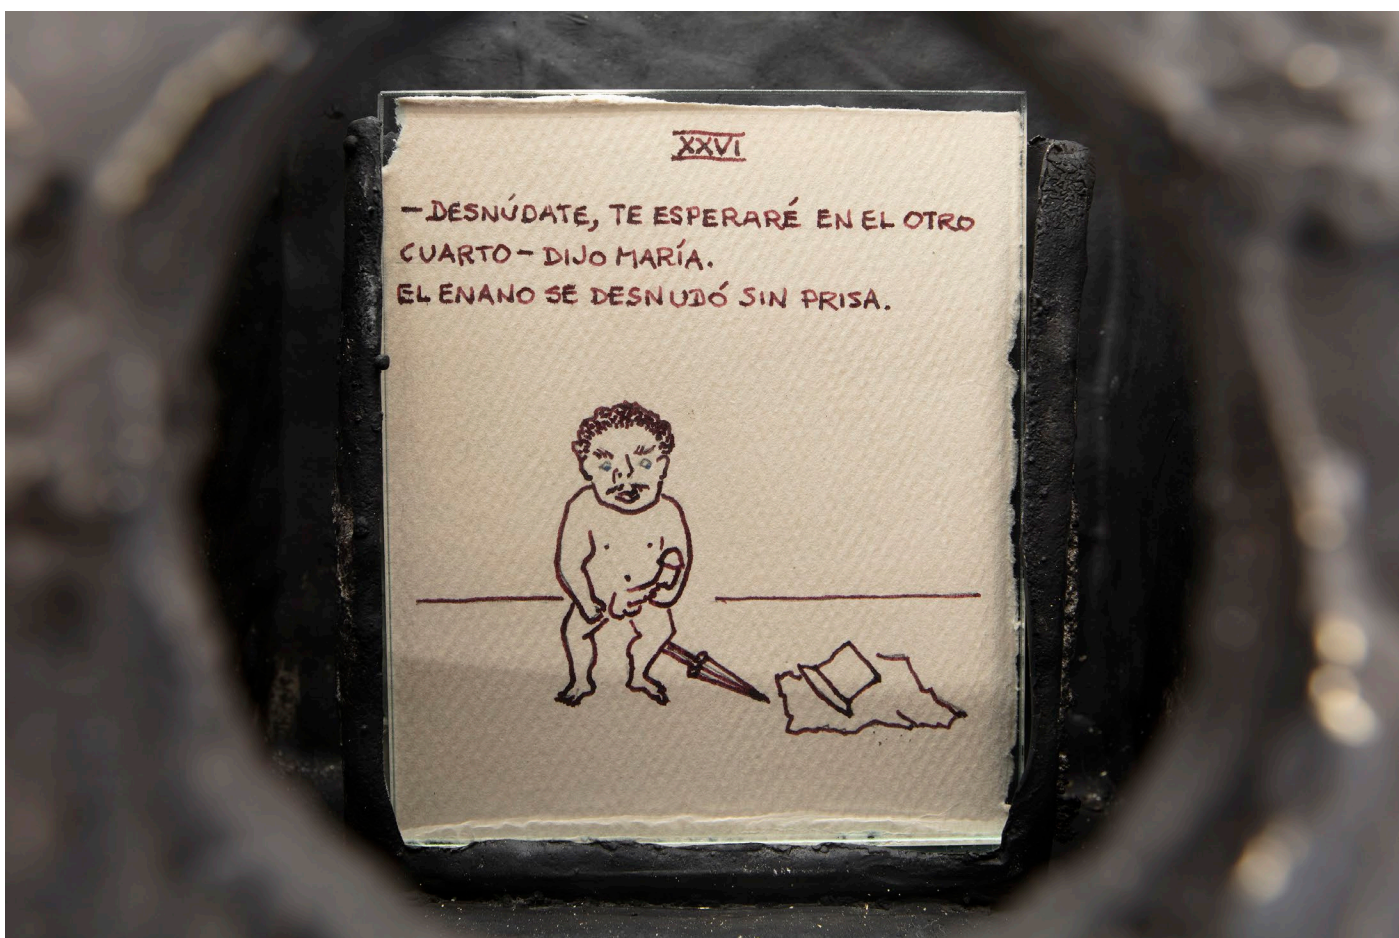 XXVI
—DESNÚDATE, TE ESPERARÉ EN EL OTRO
CUARTO— DIJO MARÍA.
EL ENANO SE DESNUDÓ SIN PRISA.